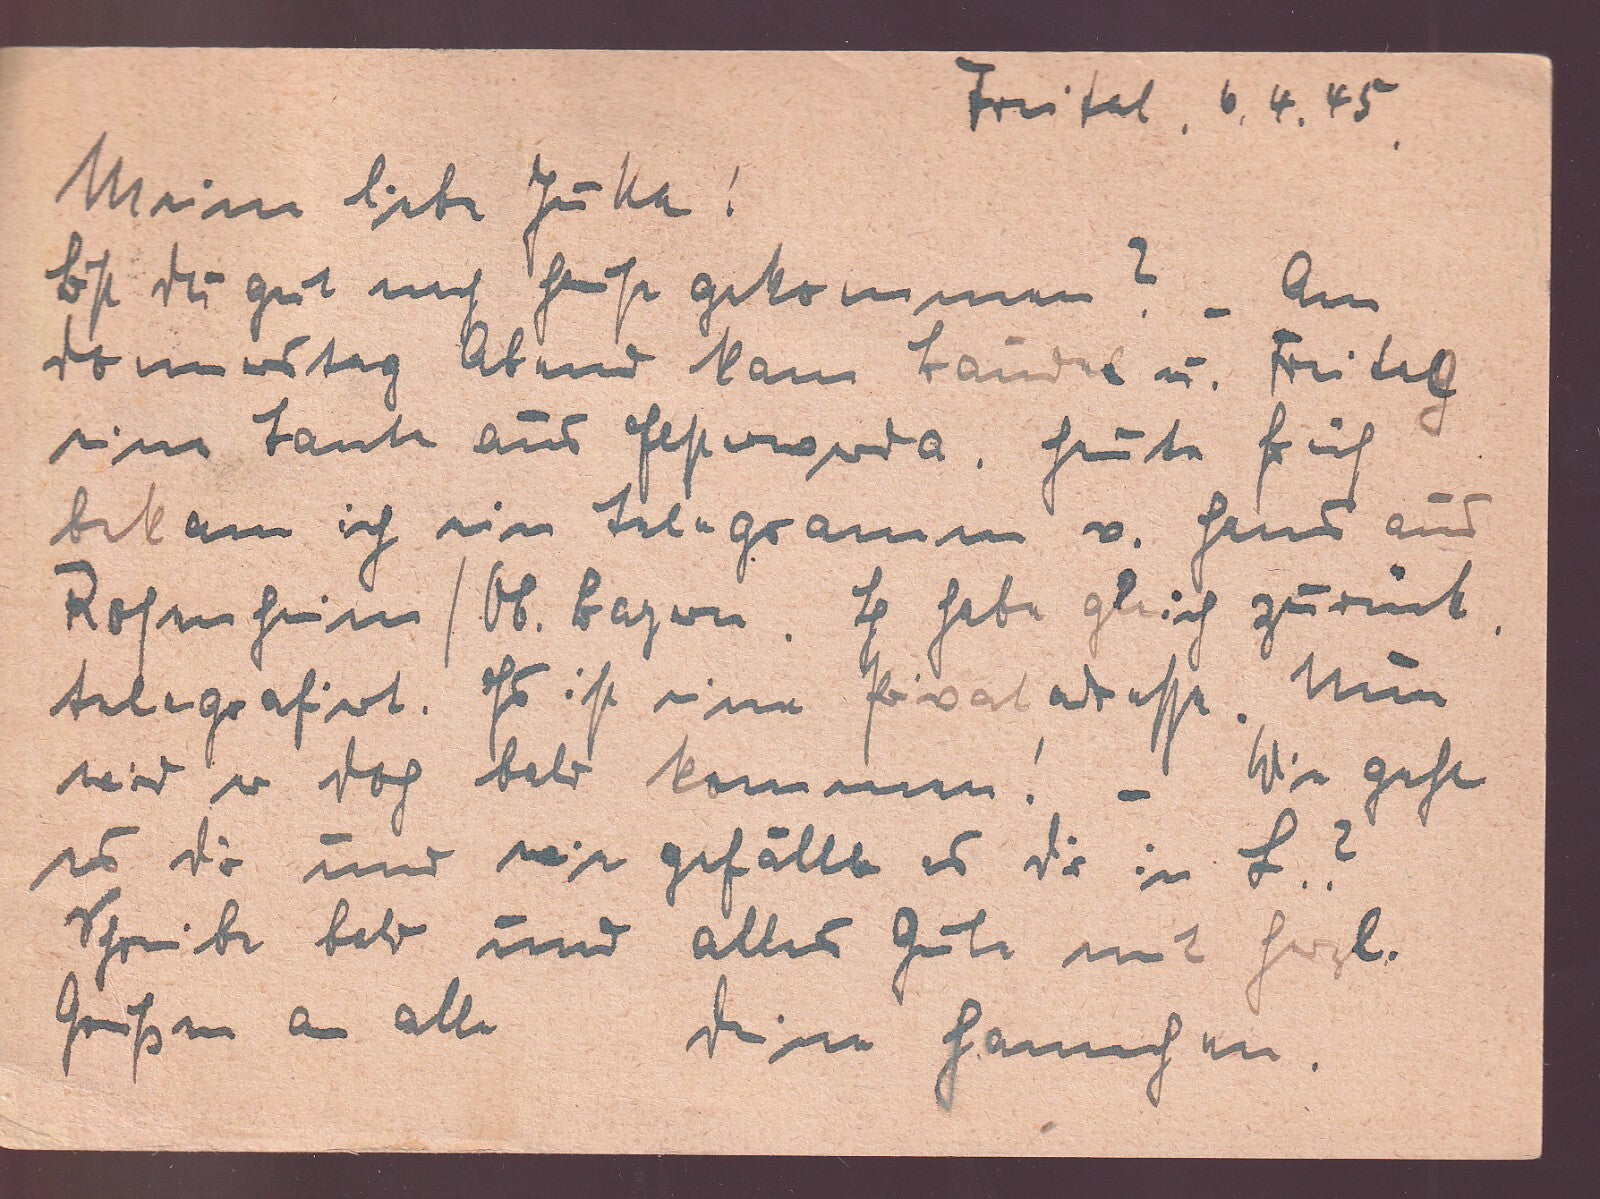 Freital, 6.4.45.
Meine liebe Jutta!
Bist du gut nach Hause gekommen? – Am
donnerstag Abend kam u. Freitag
eine Tante aus Hoyerswerda. Heute früh
bekam ich ein Telegramm v. Hans aus
Rosenheim / Ob. Bayern. Ich habe gleich zurück
telegrafiert. Es ist eine Privatadresse. Nun
wird er doch bald kommen! – Wie geht
es dir und wie gefällt es dir in L..?
Schreibe bald und alles Gute mit herzl.
Grüßen an alle deine Hannchen.